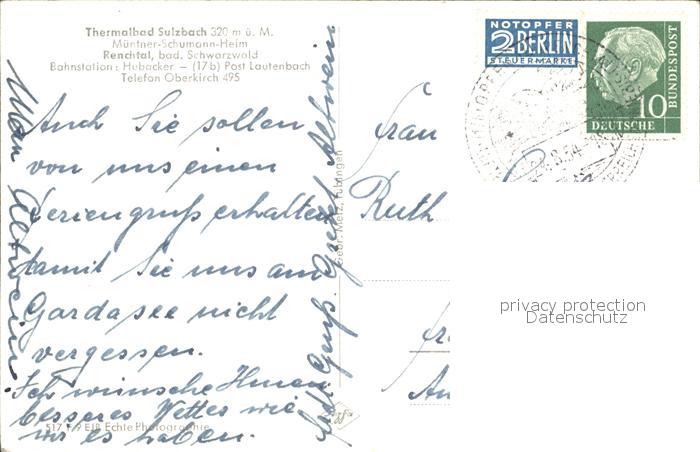 Thermalbad Sulzbach 320 m ü. M.
Müntner-Schumann-Heim
Renchtal, bad. Schwarzwald
Bahnstation: Hubacker — (17b) Post Lautenbach
Telefon Oberkirch 495
Auch Sie sollen
von uns einen
Feriengruß erhalten
damit Sie uns am
Gardasee nicht
vergessen.
Ich wünsche Ihnen
besseres Wetter wie
wir es haben.
517 F/9 E/8 Echte Photographie
Gebr. Metz, Tübingen
NOTOPFER
2 BERLIN
STEUERMARKE
DEUTSCHE
BUNDESPOST
10
8.54
Frau
Ruth
privacy protection
Datenschutz